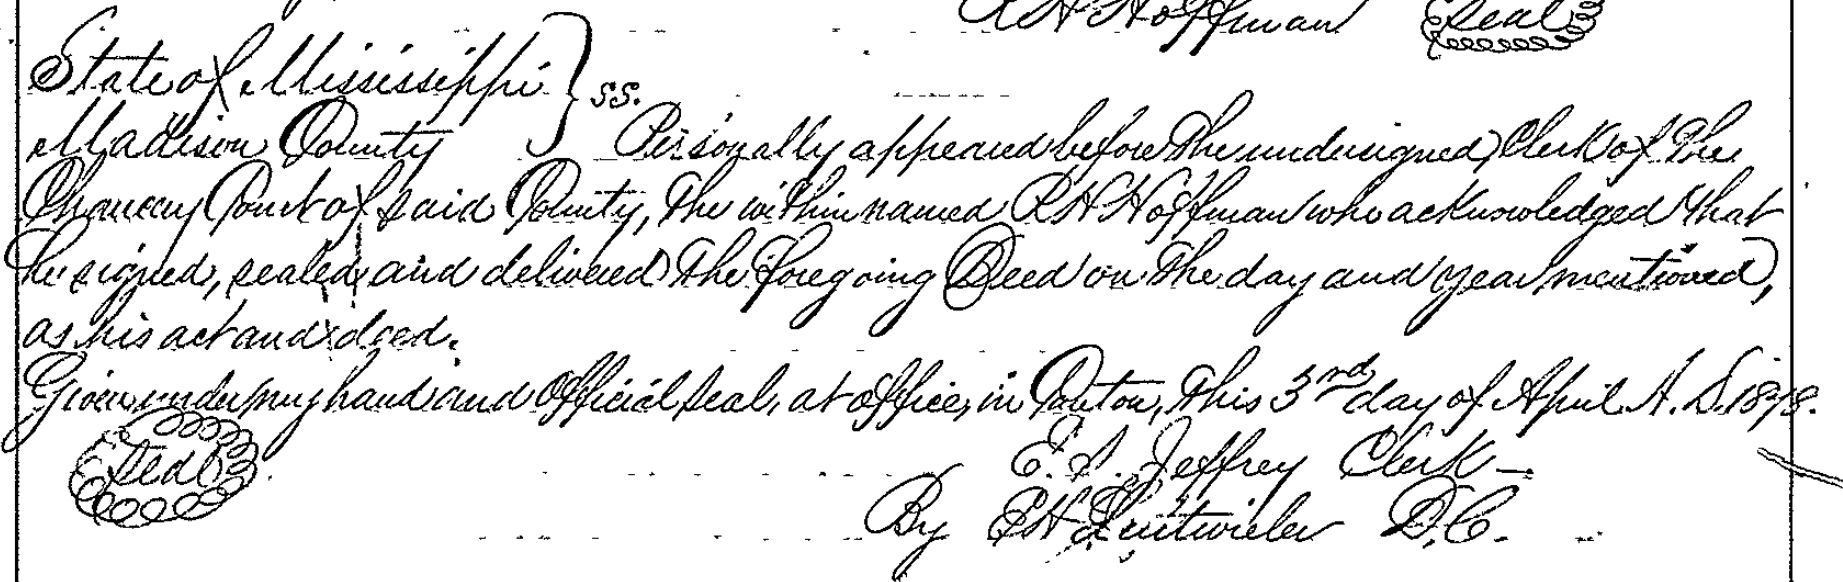 R H Hoffman Seal
State of Mississippi } ss.
Madison County Personally appeared before the undersigned, Clerk of the
Chancery Court of said County, the within named R H Hoffman who acknowledged that
he signed, sealed and delivered the foregoing Deed on the day and year mentioned,
as his act and deed.
Given under my hand and official seal, at office, in Canton, this 3rd day of April A. D. 1878.
Seal E. S. Jeffrey Clerk
By D. C.